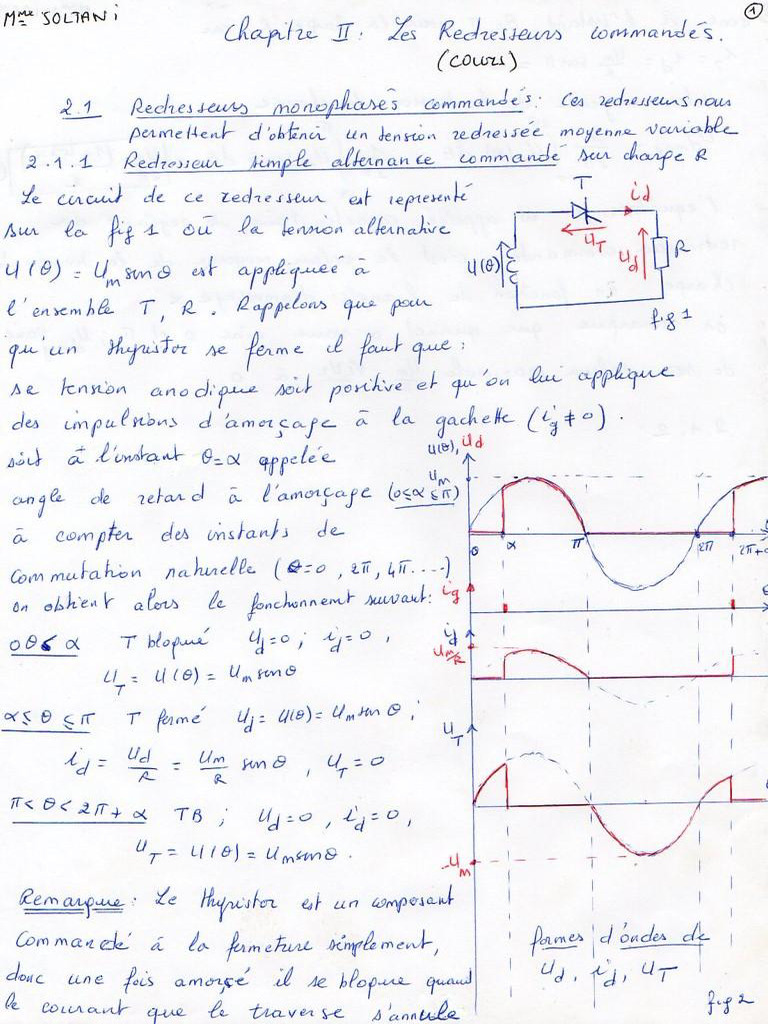 Mme SOLTANi
1
Chapitre II : Les Redresseurs commandés.
(COURS)
2.1 Redresseurs monophasés commandés : Ces redresseurs nous
permettent d'obtenir un tension redressée moyenne variable
2.1.1 Redresseur simple alternance commandé sur charge R
Le circuit de ce redresseur est representé
sur la fig 1 où la tension alternative
U(θ) = Um sinθ est appliquée à
l'ensemble T, R. Rappelons que pour
qu'un thyristor se ferme il faut que :
T
id
uT
U(θ)
ud
R
fig 1
se tension anodique soit positive et qu'on lui applique
des impulsions d'amorçage à la gachette (ig ≠ 0).
soit à l'instant θ=α appelée
angle de retard à l'amorçage (0≤α≤π)
à compter des instants de
commutation naturelle (θ=0, 2π, 4π....)
on obtient alors le fonctionnemt suivant:
0θ<α T bloqué Ud=0 ; id=0,
UT = U(θ) = Um sinθ
α≤θ≤π T fermé Ud = U(θ) = Um sinθ ;
id = Ud/R = Um/R sinθ, UT = 0
π<θ<2π+α TB ; Ud=0, id=0,
UT = U(θ) = Um sinθ.
Remarque : Le thyristor est un composant
commandé à la fermeture simplement,
donc une fois amorçé il se bloque quand
le courant que le traverse s'annule
U(θ), Ud
Um
0 α π 2π 2π+α
ig
θ
id
Um/R
UT
-Um
formes d'ondes de
Ud, id, UT
fig 2